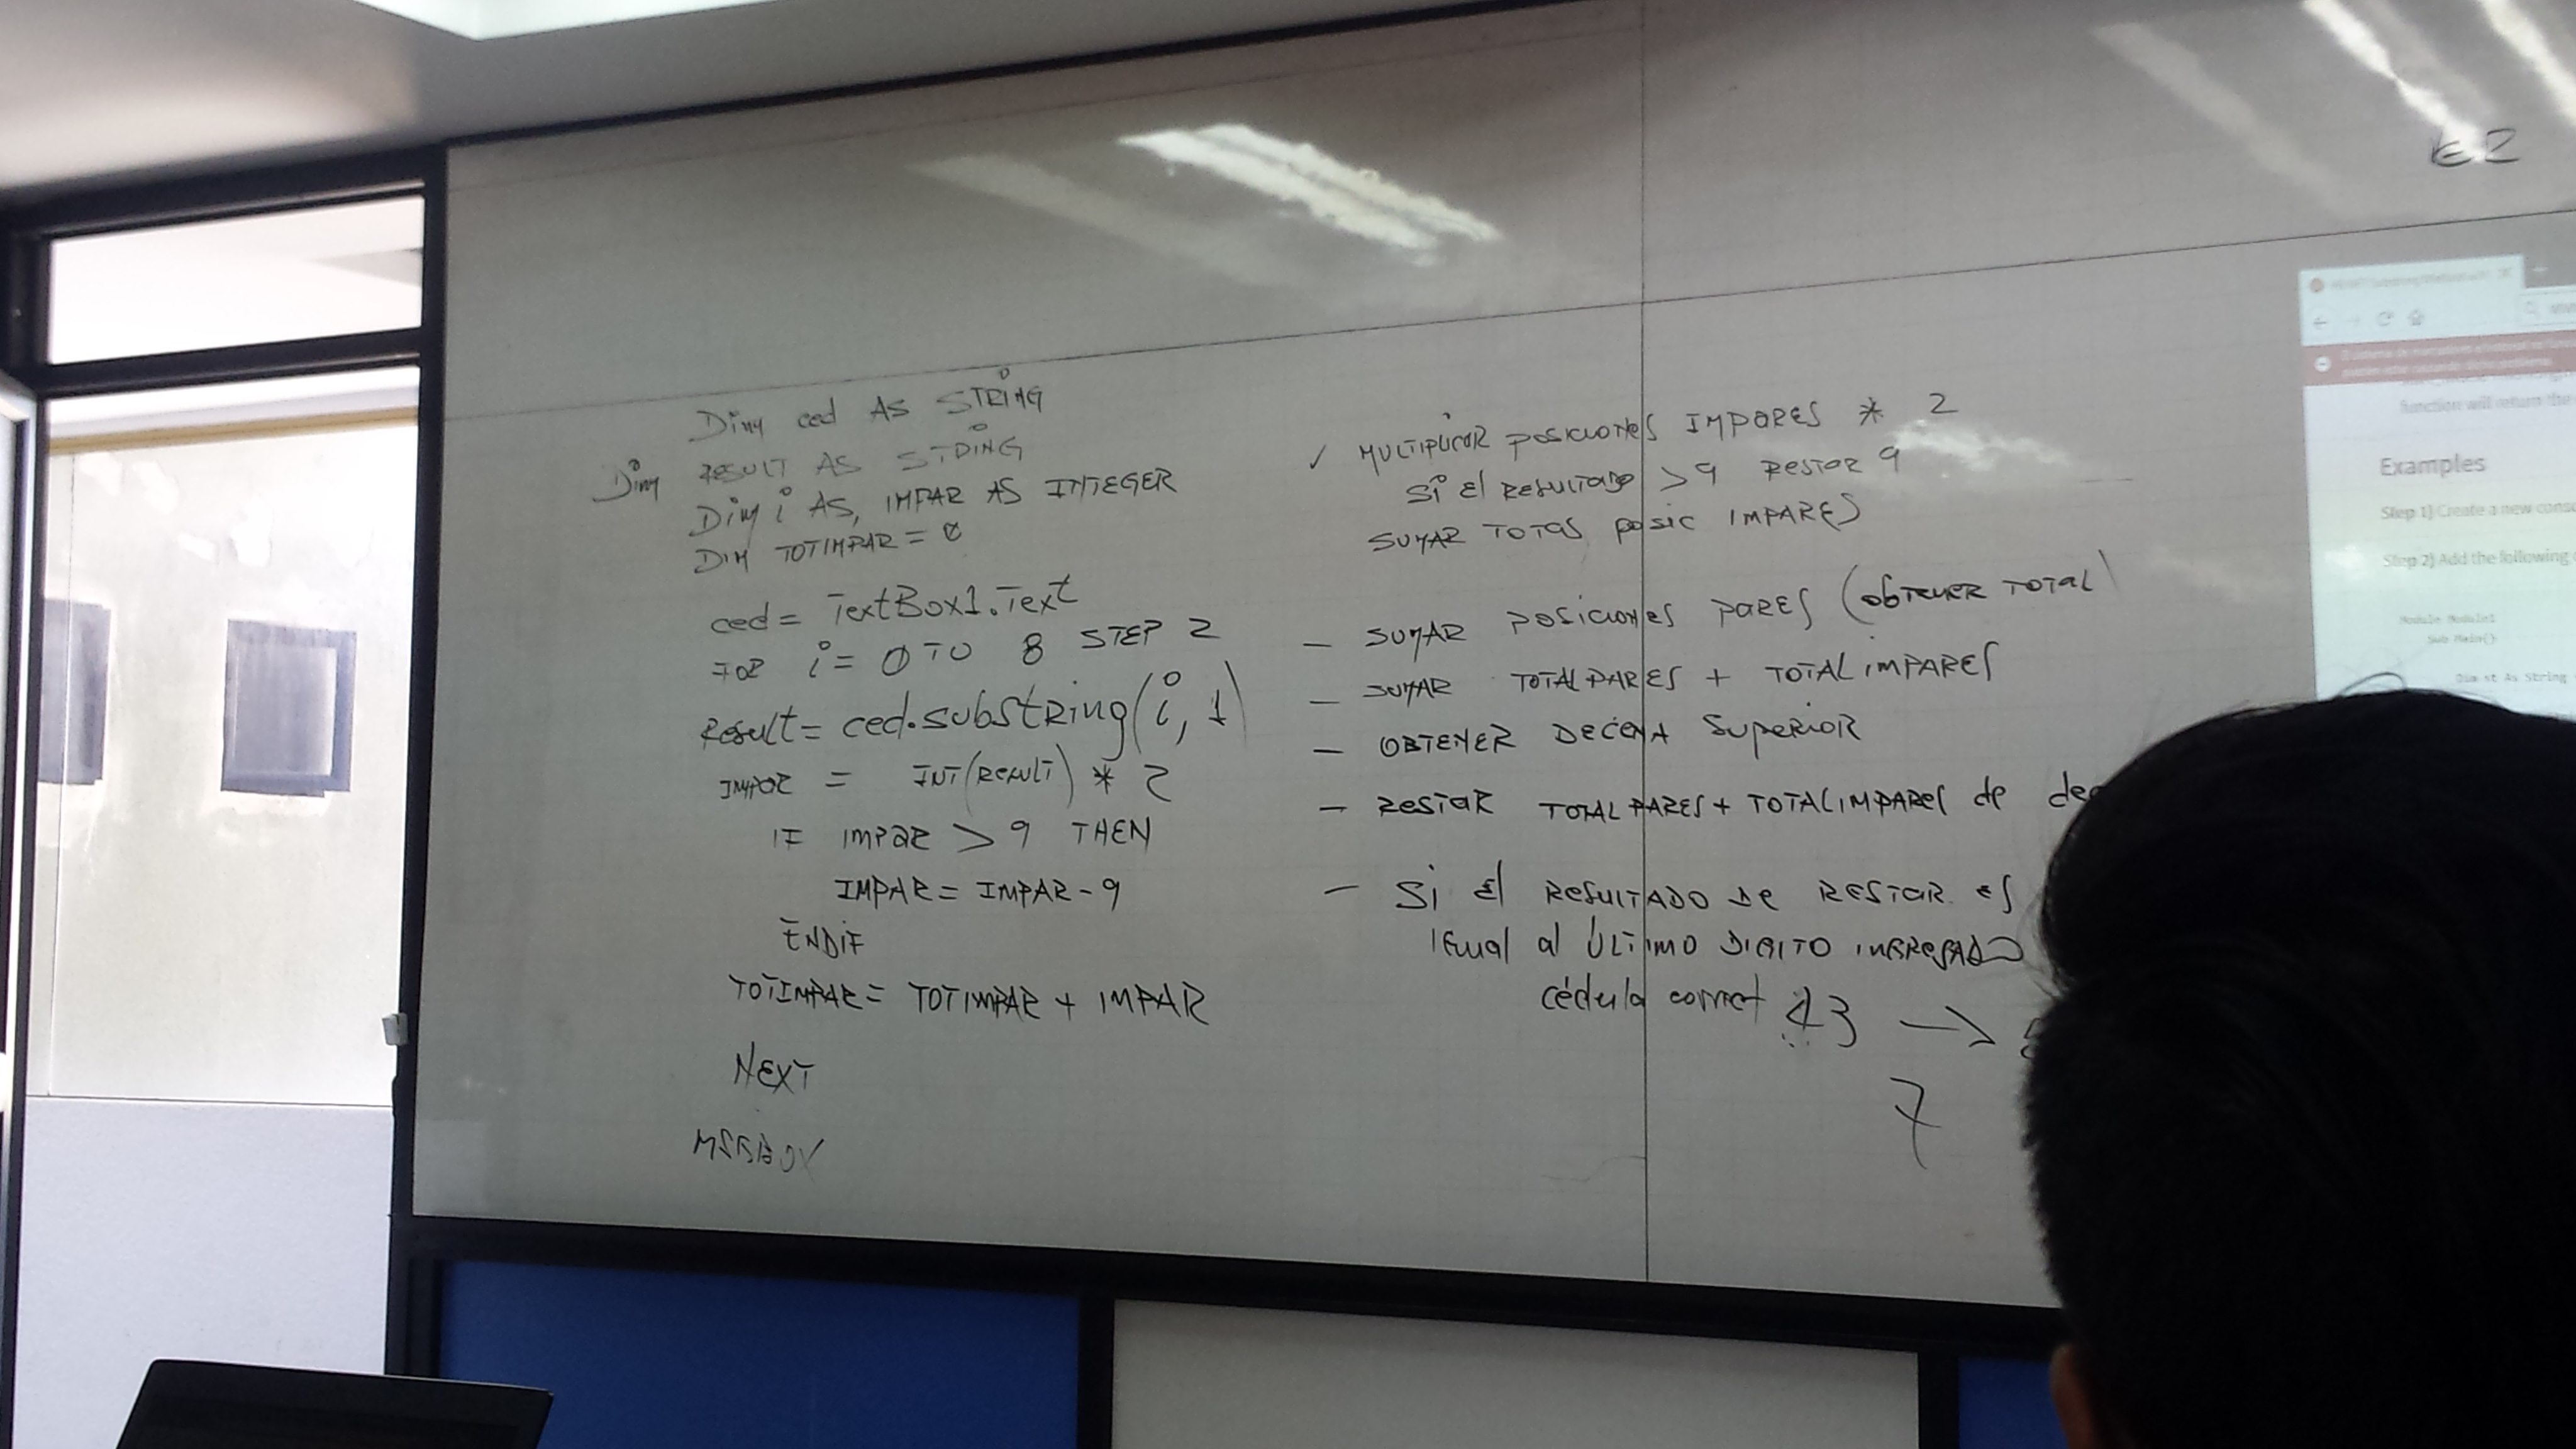 Dim ced AS STRING
Dim RESULT AS STRING
Dim i AS, IMPAR AS INTEGER
DIM TOTIMPAR = 0
ced = TextBox1.Text
FOR i = 0 TO 8 STEP 2
Result = ced.substring(i, 1)
IMPAR = INT(RESULT) * 2
IF IMPAR > 9 THEN
IMPAR = IMPAR - 9
ENDIF
TOTIMPAR = TOTIMPAR + IMPAR
NEXT
MSGBOX
✓ MULTIPLICAR POSICIONES IMPARES * 2
Si El RESULTADO > 9 RESTAR 9
SUMAR TOTAS posic IMPARES
- SUMAR POSICIONES PARES (OBTENER TOTAL)
- SUMAR TOTALPARES + TOTALIMPARES
- OBTENER DECENA SUPERIOR
- RESTAR TOTALPARES + TOTALIMPARES de
- Si El RESULTADO DE RESTAR es
IGUAL al ÚLTIMO DIGITO INGRESADO
cédula correct 43 →
7
Examples
Step 1) Create a new
Step 2) Add the following
Module Module1
Sub Main()
Dim st As String
function will return the